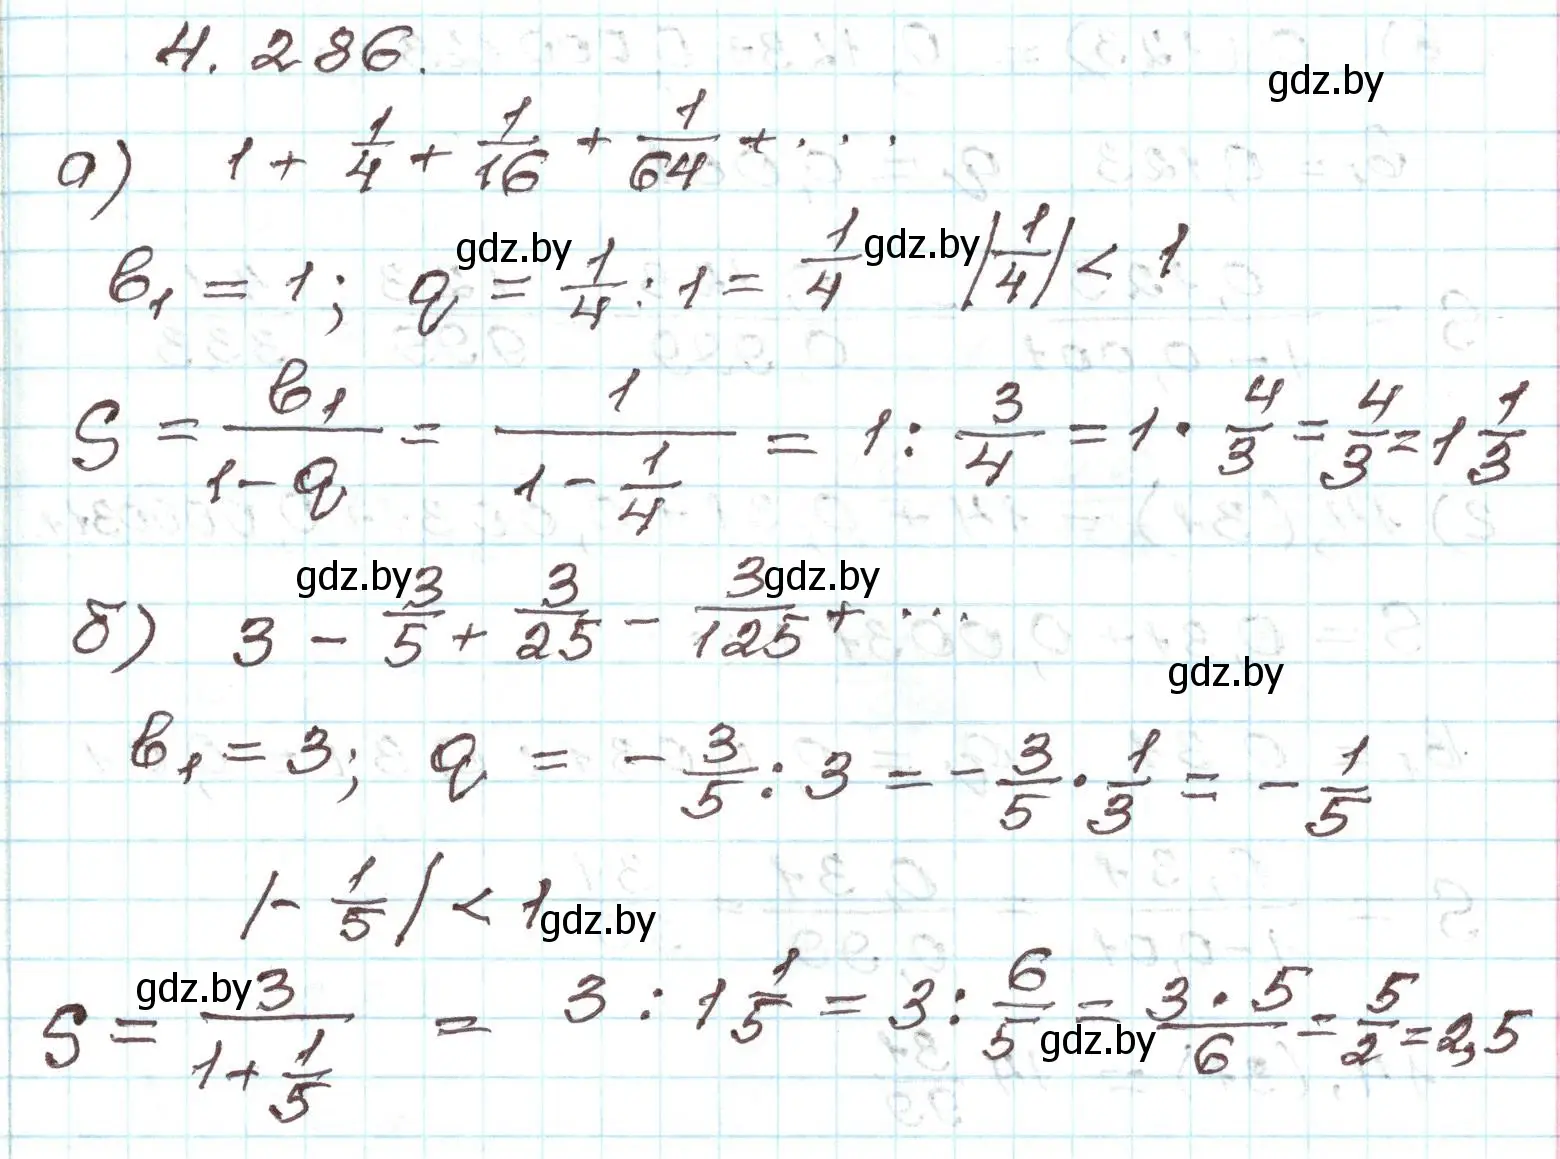 4.286.
gdz.by
а) 1 + 1/4 + 1/16 + 1/64 + ...
в₁ = 1; gdz.by q = 1/4 : 1 = 1/4 gdz.by |1/4| < 1
S = в₁/(1-q) = 1/(1 - 1/4) = 1 : 3/4 = 1 · 4/3 = 4/3 = 1 1/3
gdz.by gdz.by
б) 3 - 3/5 + 3/25 - 3/125 + ...
gdz.by
в₁ = 3; q = -3/5 : 3 = -3/5 · 1/3 = -1/5
|-1/5| < 1 gdz.by
gdz.by
S = 3/(1 + 1/5) = 3 : 1 1/5 = 3 : 6/5 = (3 · 5)/6 = 5/2 = 2,5
gdz.by